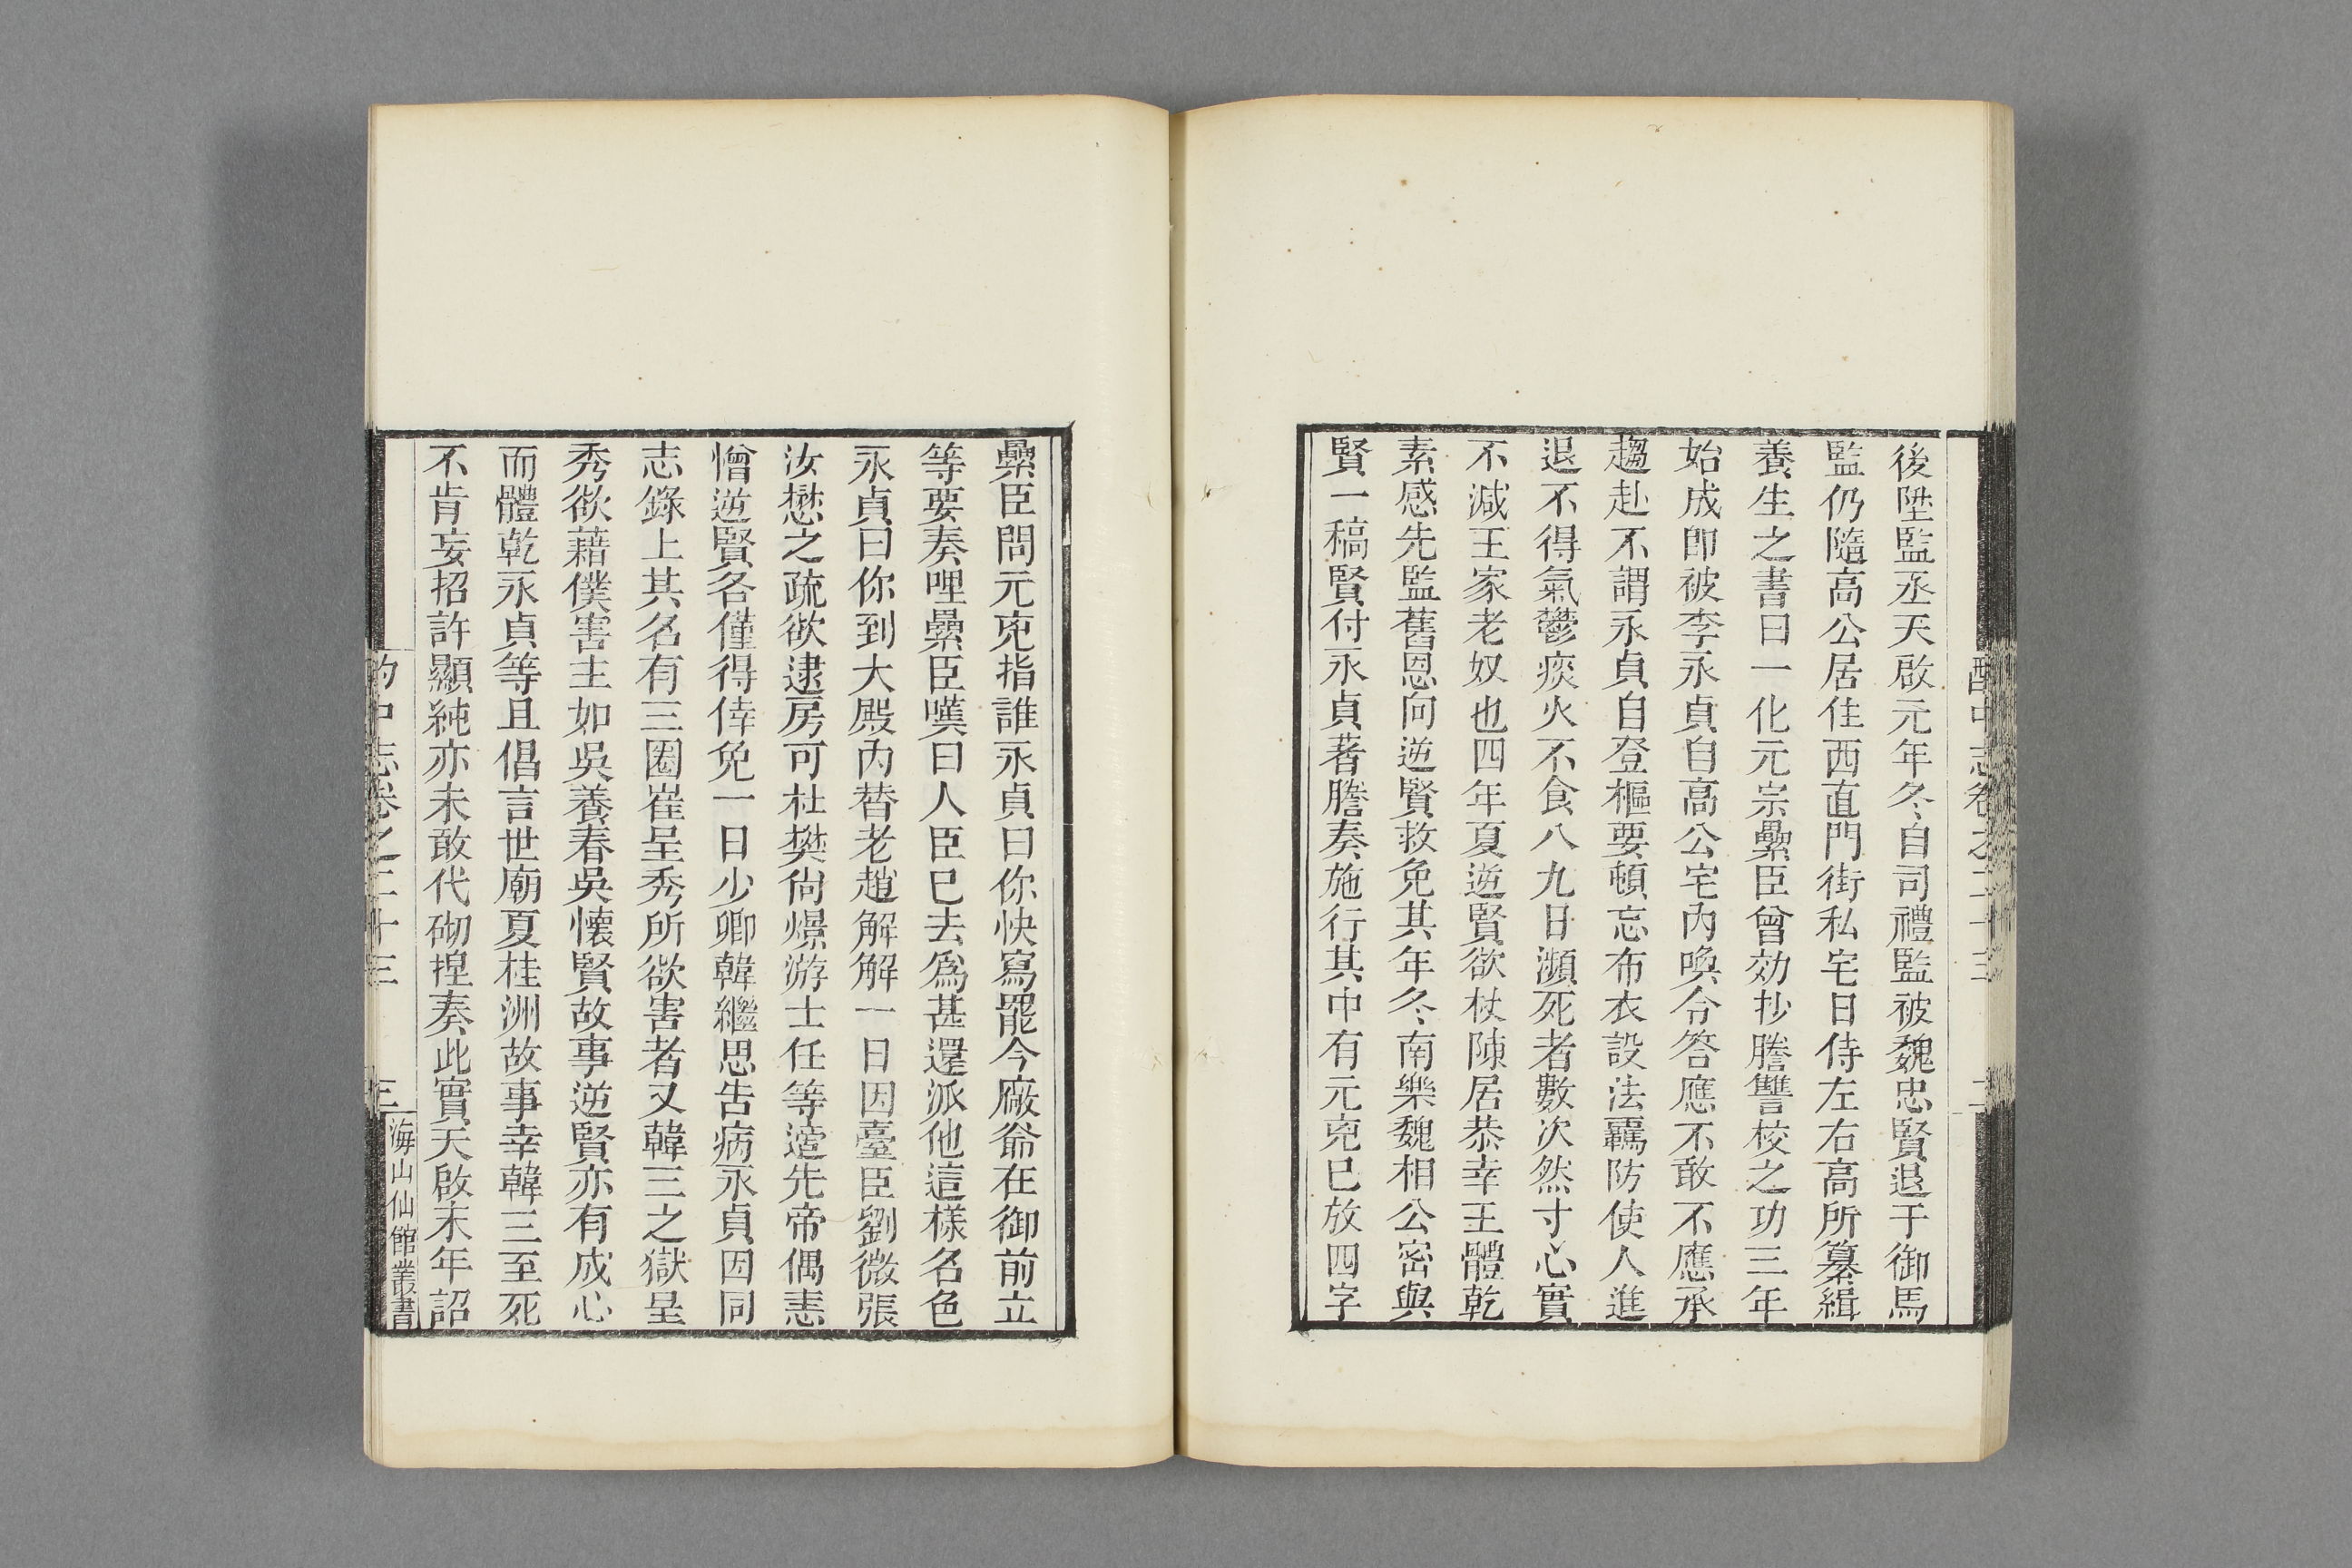 酌中志卷之二十三
二
後陞監丞天啟元年冬自司禮監被魏忠賢退于御馬
監仍隨高公居住西直門街私宅日侍左右高所纂緝
養生之書曰一化元宗纍臣曾効抄謄讐校之功三年
始成卽被李永貞自高公宅內喚令答應不敢不應承
趨赴不謂永貞自登樞要頓忘布衣設法羈防使人進
退不得氣鬱痰火不食八九日瀕死者數次然寸心實
不減王家老奴也四年夏逆賢欲杖陳居恭幸王體乾
素感先監舊恩向逆賢救免其年冬南樂魏相公密與
賢一稿賢付永貞著謄奏施行其中有元克已放四字
纍臣問元克指誰永貞曰你快寫罷今廠爺在御前立
等要奏哩纍臣嘆曰人臣已去爲甚還派他這樣名色
永貞曰你到大殿內替老趙解解一日因臺臣劉微張
汝懋之疏欲逮房可壯樊尙燝游士任等適先帝偶恚
憎逆賢各僅得倖免一日少卿韓繼思告病永貞因同
志錄上其名有三圈崔呈秀所欲害者又韓三之獄呈
秀欲藉僕害主如吳養春吳懷賢故事逆賢亦有成心
而體乾永貞等且倡言世廟夏桂洲故事幸韓三至死
不肯妄招許顯純亦未敢代砌揑奏此實天啟末年詔
酌中志卷之二十三
三
海山仙館叢書